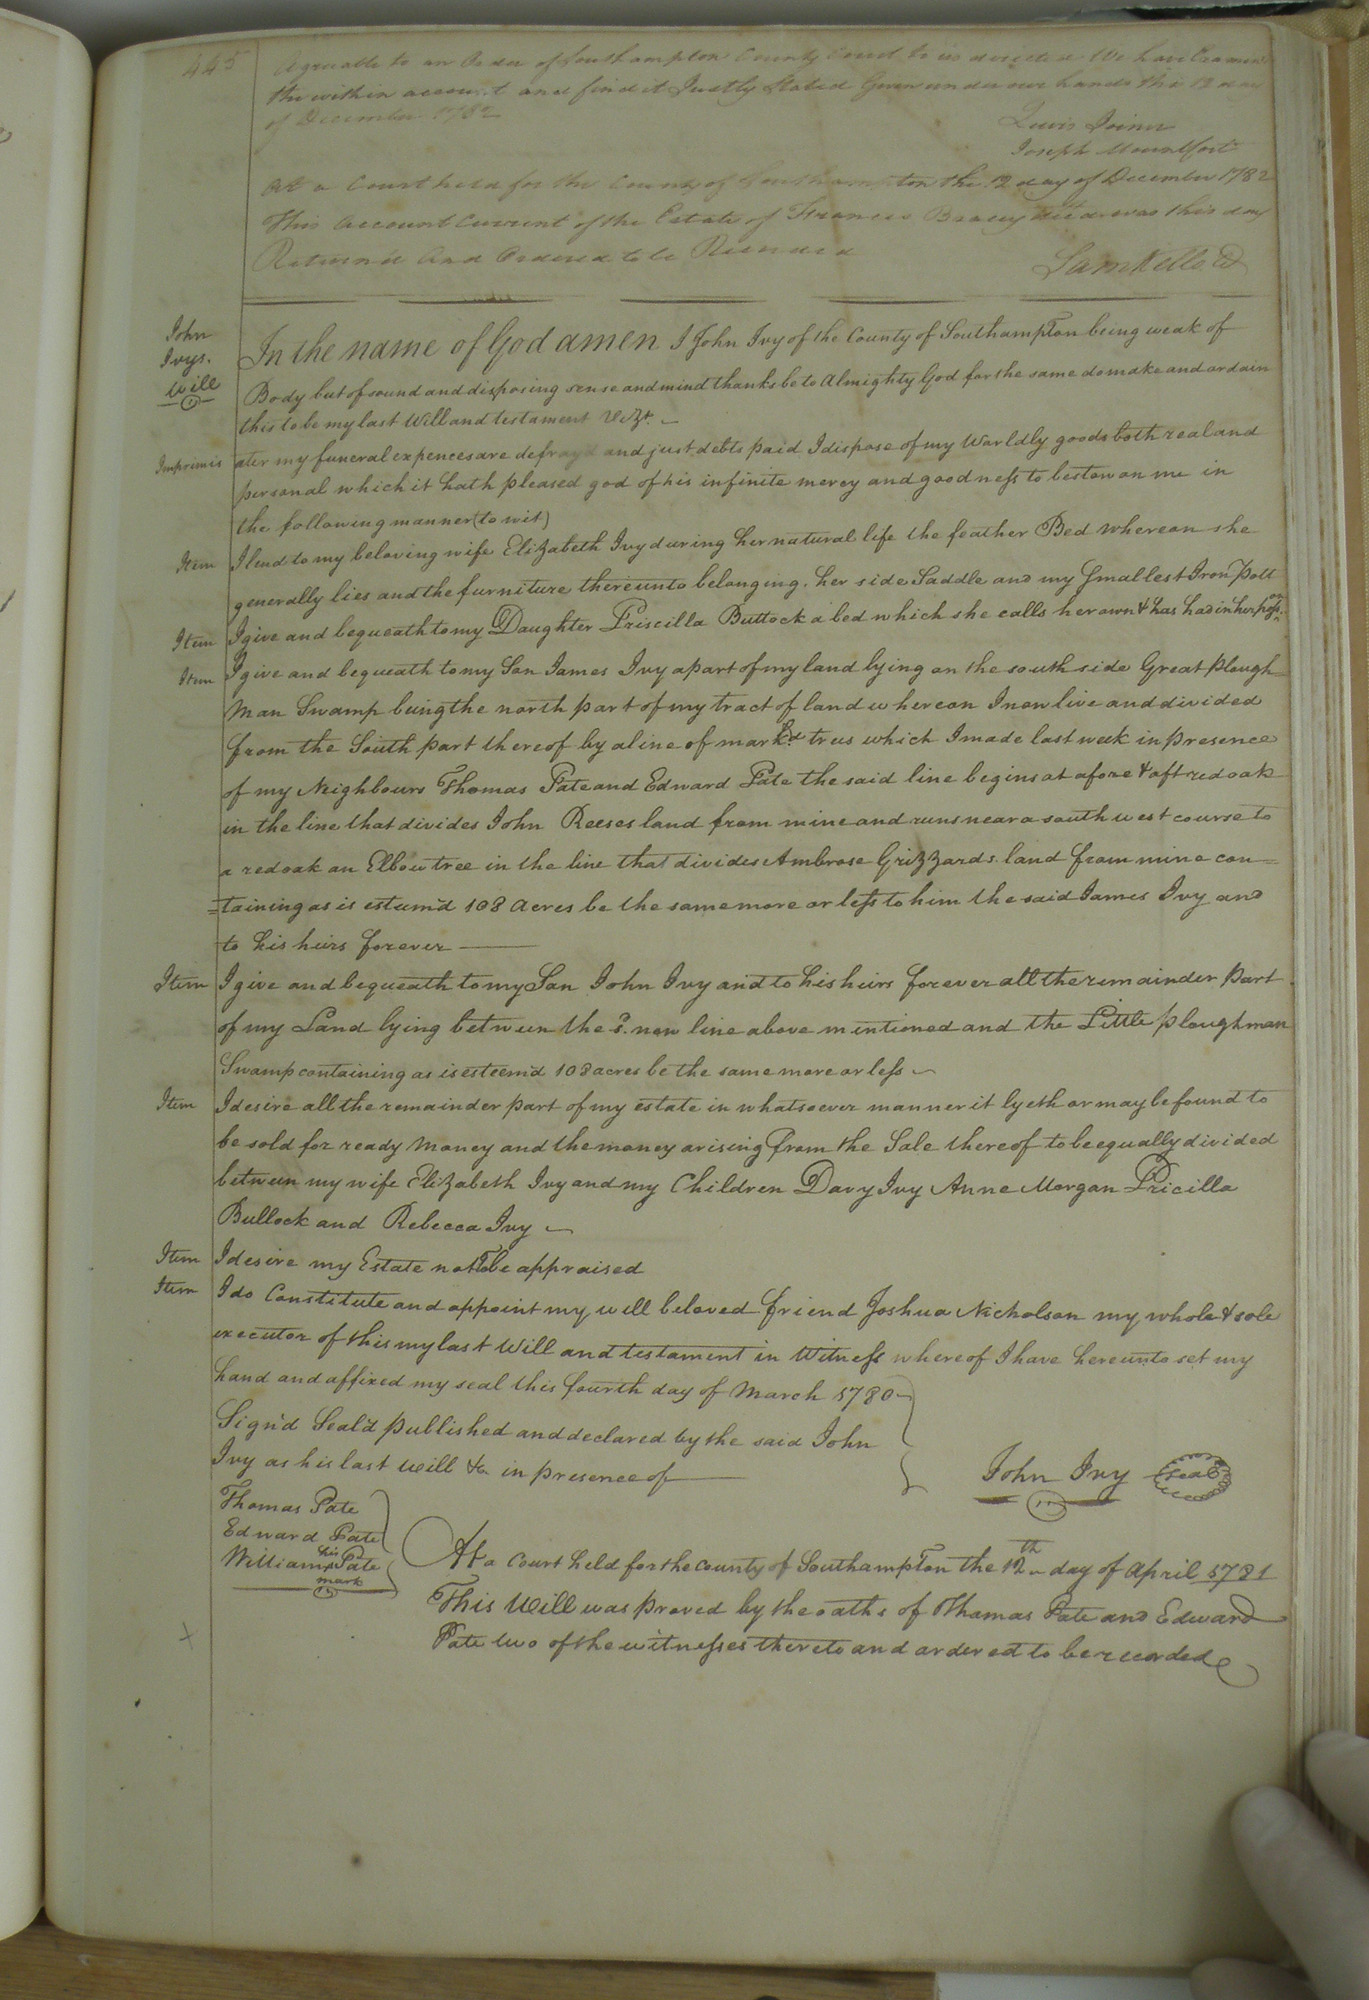 445
Agreeable to an Order of Southampton County Court to us directed We have Examined
the within account and find it Justly Stated Given under our hands this 12 day
of December 1782
Lewis Joiner
Joseph Mountfort
At a Court held for the County of Southampton the 12 day of December 1782
This Account Current of the Estate of Frances Bracey decd. was this day
Return'd And Ordered to be Recorded
Sam Kello
John
Ivys.
Will
In the name of God amen I John Ivy of the County of Southampton being weak of
Body but of sound and disposing sense and mind thanks be to Almighty God for the same do make and ordain
this to be my last Will and testament Vizt.
Imprimis ater my funeral expences are defrayd and just debts paid I dispose of my Worldly goods both real and
personal which it hath pleased god of his infinite mercy and goodness to bestow on me in
the following manner (to wit)
Item I lend to my beloving wife Elizabeth Ivy during her natural life the feather Bed whereon she
generally lies and the furniture thereunto belonging. her side Saddle and my Smallest Iron Pott
Item I give and bequeath to my Daughter Priscilla Buttock a bed which she calls her own & has had in her posson.
Item I give and bequeath to my Son James Ivy a part of my land lying on the south side Great Plough
Man Swamp being the north part of my tract of land whereon I now live and divided
from the South part thereof by a line of mark'd trees which I made last week in presence
of my Neighbours Thomas Pate and Edward Pate the said line begins at a fore & aft red oak
in the line that divides John Reeses land from mine and runs near a south west course to
a red oak an Elbow tree in the line that divides Ambrose Grizzards land from mine con=
=taining as is estem'd 108 acres be the same more or less to him the said James Ivy and
to his heirs forever
Item I give and bequeath to my Son John Ivy and to his heirs forever all the remainder part
of my Land lying between the sd. new line above mentioned and the Little ploughman
Swamp containing as is esteem'd 108 acres be the same more or less
Item I desire all the remainder part of my estate in whatsoever manner it lyeth or may be found to
be sold for ready Money and the money arising from the Sale thereof to be equally divided
between my wife Elizabeth Ivy and my Children Davy Ivy Anne Morgan Pricilla
Bullock and Rebecca Ivy
Item I desire my Estate not To be appraised
Item I do Constitute and appoint my well beloved friend Joshua Nicholson my whole & sole
executor of this my last Will and testament in Witness whereof I have hereunto set my
hand and affixed my seal this fourth day of March 1780
Sign'd Seal'd published and declared by the said John
Ivy as his last Will &c in presence of
John Ivy seal
Thomas Pate
Edward Pate
William his Pate
mark
At a Court held for the County of Southampton the 12th day of April 1781
This Will was proved by the oaths of Thomas Pate and Edward
Pate two of the witnesses thereto and ordered to be recorded